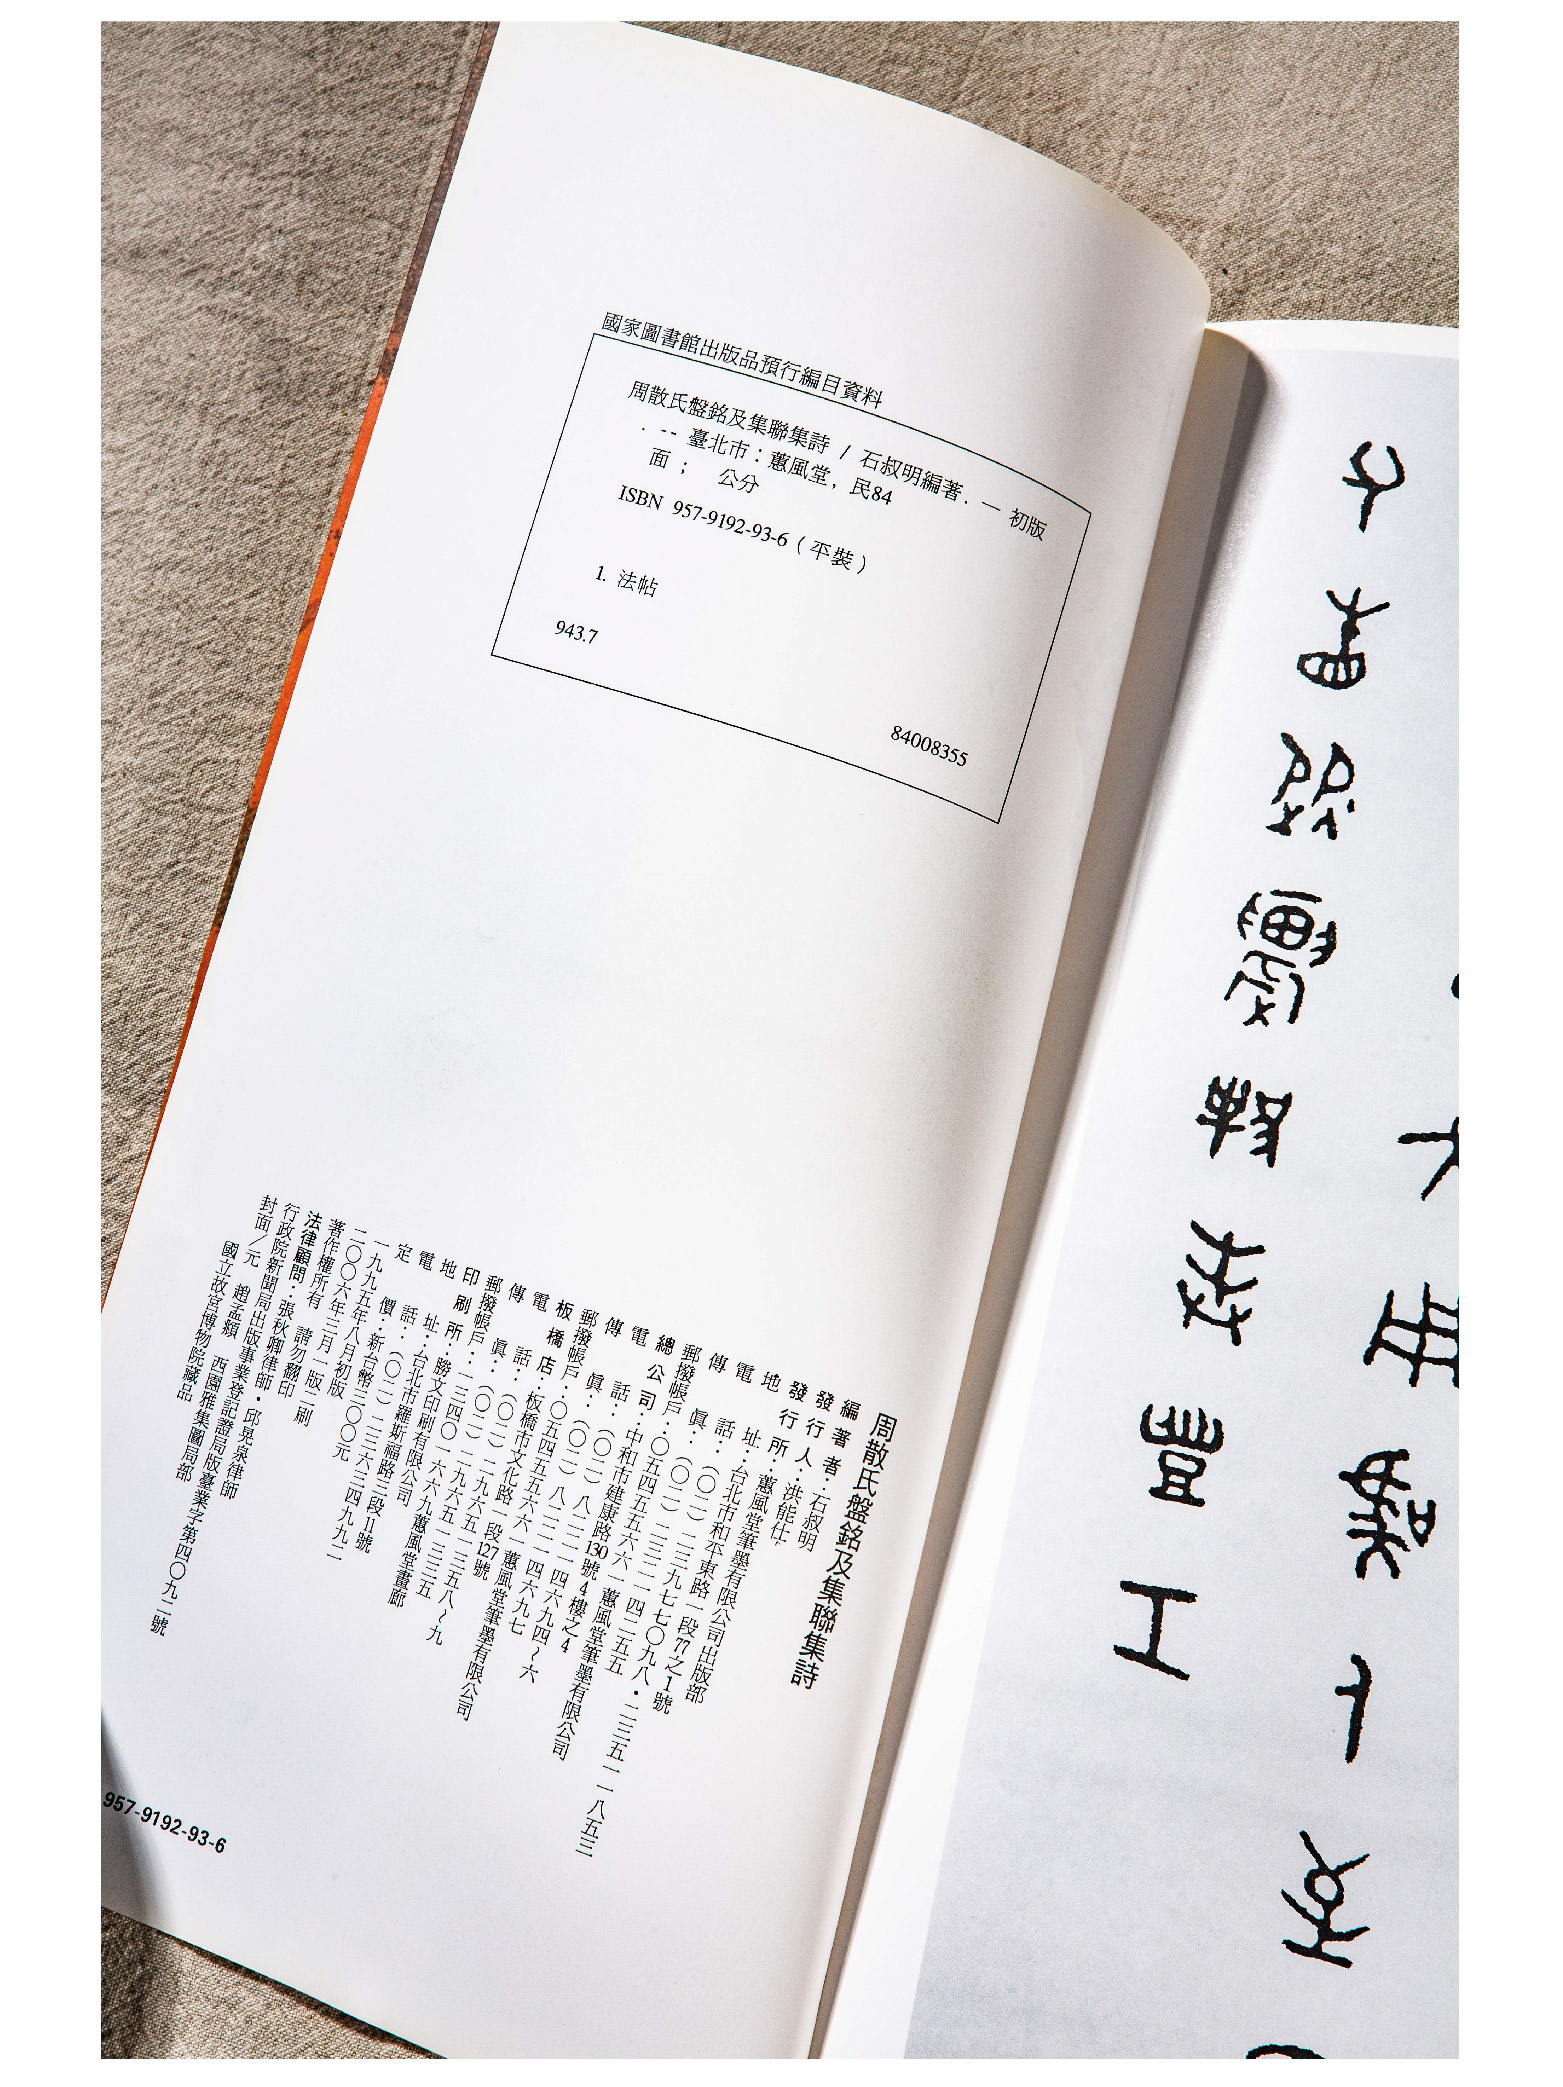 國家圖書館出版品預行編目資料
周散氏盤銘及集聯集詩 / 石叔明編著. — 初版
. -- 臺北市：蕙風堂, 民84
面； 公分
ISBN 957-9192-93-6（平裝）
1. 法帖
943.7
84008355
周散氏盤銘及集聯集詩
編著者：石叔明
發行人：洪能仕
發行所：蕙風堂筆墨有限公司出版部
地址：台北市和平東路一段77之1號
電話：（〇二）二三九七七〇九八・二三五一一八五三
傳真：（〇二）二三二一四二五五
郵撥帳戶：〇五四五五六六一蕙風堂筆墨有限公司
總公司：中和市建康路130號4樓之4
電話：（〇二）八二二一四六九四～六
傳真：（〇二）八二二一四六九七
郵撥帳戶：〇五四五五六六一蕙風堂筆墨有限公司
板橋店：板橋市文化路一段127號
電話：（〇二）二九六五一三五八～九
傳真：（〇二）二九六五一三三五
郵撥帳戶：一三四〇一六六九蕙風堂畫廊
印刷所：勝文印刷有限公司
地址：台北市羅斯福路三段11號
電話：（〇二）二三六三四九九二
定價：新台幣三〇〇元
一九九五年八月初版
二〇〇六年三月一版二刷
著作權所有 請勿翻印
法律顧問：張秋卿律師・邱晃泉律師
行政院新聞局出版事業登記證局版臺業字第四〇九二號
封面／元 趙孟頫 西園雅集圖局部
國立故宮博物院藏品
957-9192-93-6